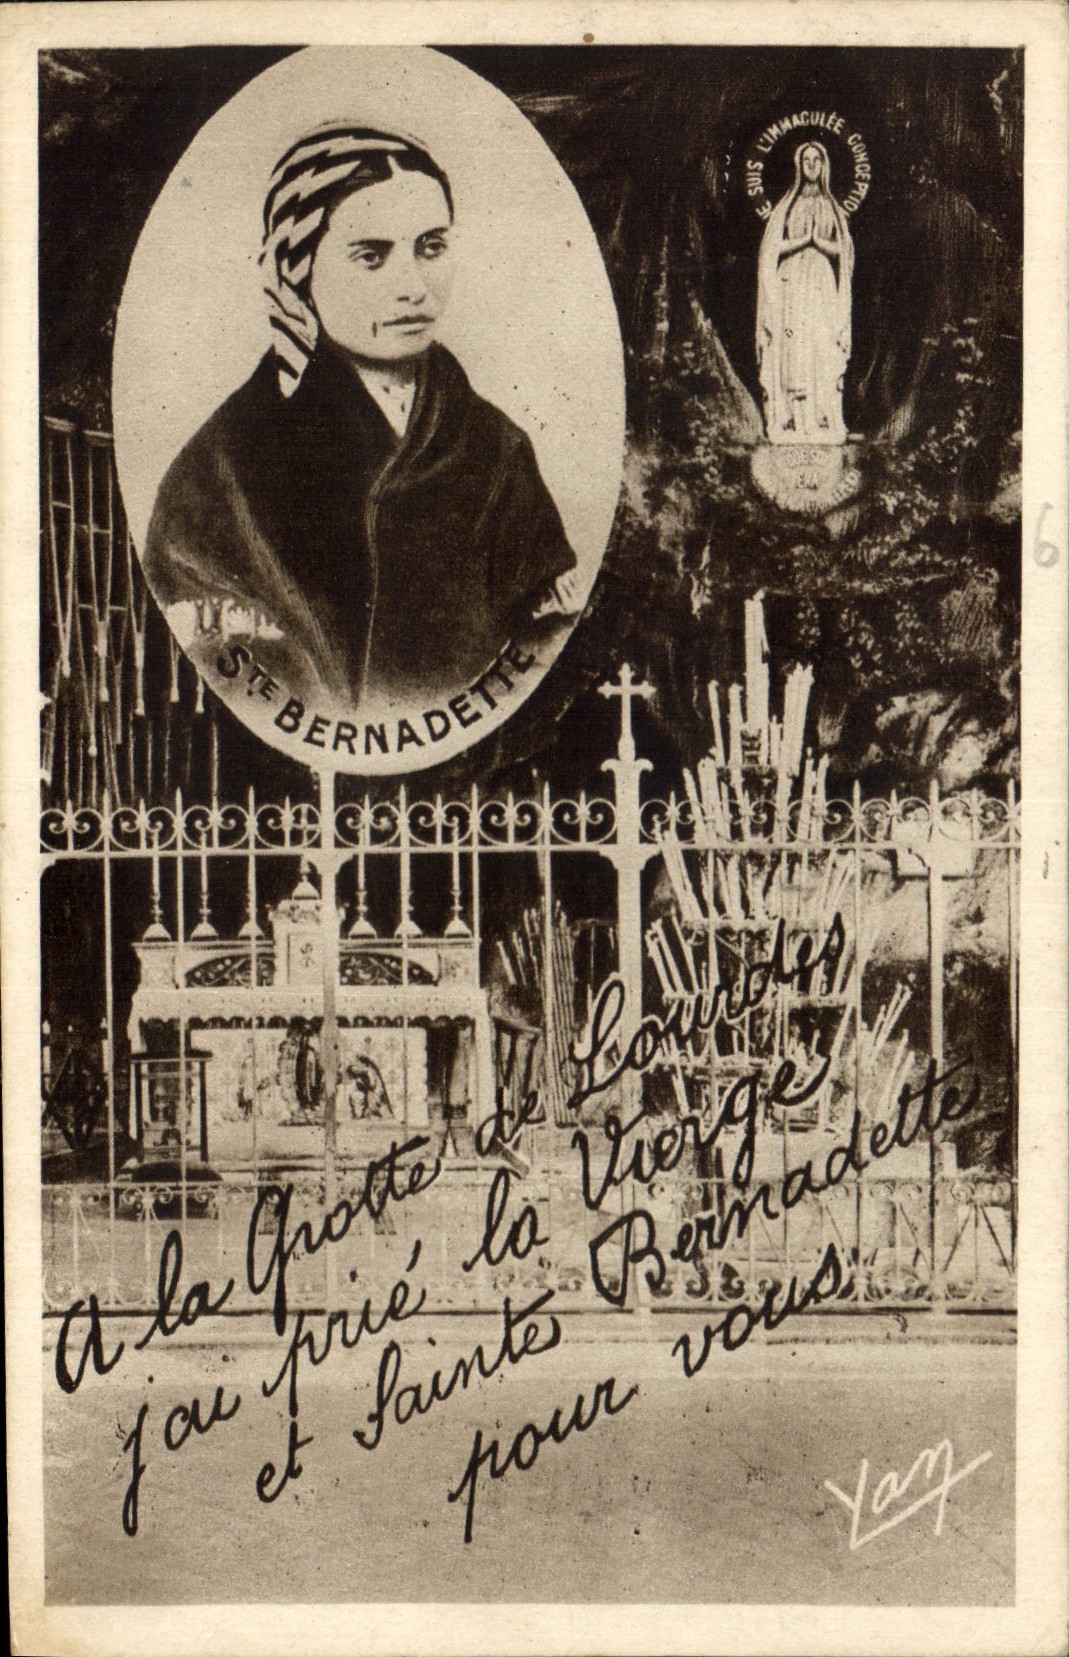 JE SUIS L'IMMACULÉE CONCEPTION
STE BERNADETTE
A la Grotte de Lourdes
j'ai prié la Vierge
et Sainte Bernadette
pour vous
Yan
6